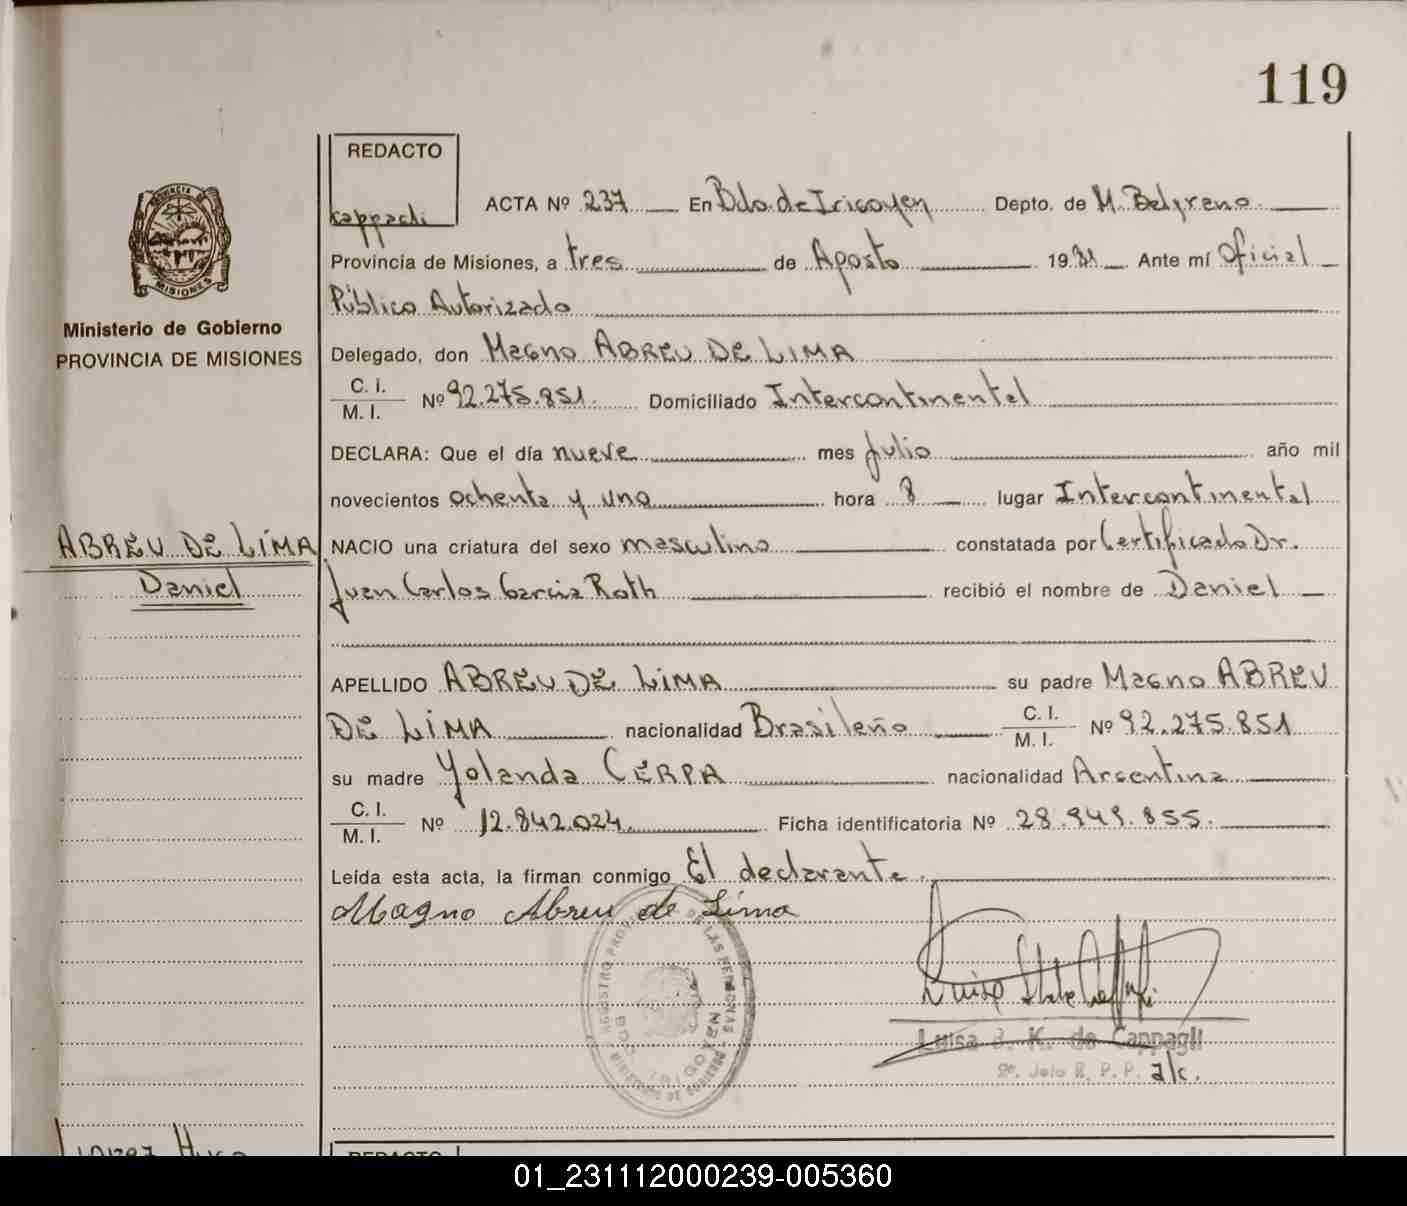 119
REDACTO
cappagli
ACTA Nº 237 En Bdo. de Irigoyen Depto. de M. Belgrano
Provincia de Misiones, a tres de Agosto 1981 Ante mí Oficial
Público Autorizado
PROVINCIA DE
MISIONES
Ministerio de Gobierno
PROVINCIA DE MISIONES
Delegado, don Magno ABREU DE LIMA
C. I.
M. I. Nº 92.275.851. Domiciliado Intercontinental
DECLARA: Que el día nueve mes Julio año mil
novecientos ochenta y uno hora 8 lugar Intercontinental
ABREU DE LIMA
Daniel
NACIO una criatura del sexo masculino constatada por Certificado Dr.
Juan Carlos Garcia Roth recibió el nombre de Daniel
APELLIDO ABREU DE LIMA su padre Magno ABREU
DE LIMA nacionalidad Brasileño C. I.
M. I. Nº 92.275.851
su madre Yolanda CERPA nacionalidad Argentina
C. I.
M. I. Nº 12.842.024. Ficha identificatoria Nº 28.949.855.
Leída esta acta, la firman conmigo El declarante.
Magno Abreu de Lima
REGISTRO PROV. DE LAS PERSONAS
Luisa K. de Cappagli
2º. Jefe R. P. P. a/c.
REDACTO
01_231112000239-005360